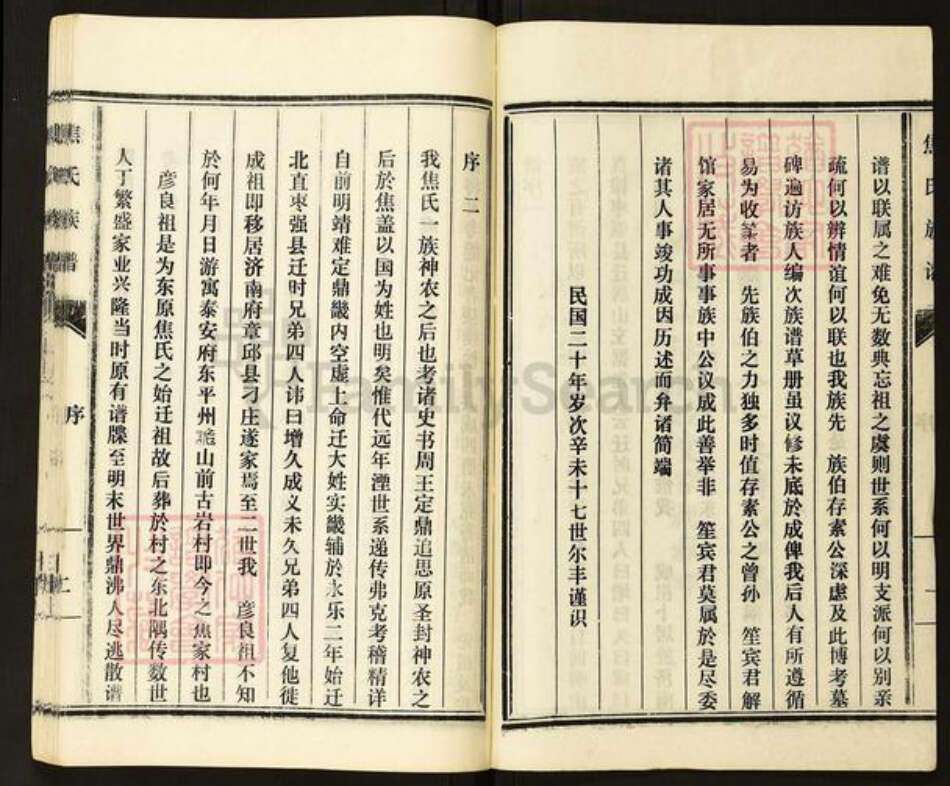 焦氏族谱
谱以联属之难免无数典忘祖之虞则世系何以明支派何以别亲
疏何以辨情谊何以联也我族先 族伯存素公深虑及此博考墓
碑遍访族人编次族谱草册虽议修未底於成俾我后人有所遵循
易为收筭者 先族伯之力独多时值存素公之曾孙 笙宾君解
馆家居无所事事族中公议成此善举非 笙宾君莫属於是尽委
诸其人事竣功成因历述而弁诸简端
民国二十年岁次辛未十七世尔丰谨识
序二
我焦氏一族神农之后也考诸史书周王定鼎追思原圣封神农之
后於焦盖以国为姓也明矣惟代远年湮世系递传弗克考稽精详
自前明靖难定鼎畿内空虚上命迁大姓实畿辅於永乐二年始迁
北直枣强县迁时兄弟四人讳曰增久成义未久兄弟四人复他徙
成祖即移居济南府章邱县刁庄遂家焉至二世我 彦良祖不知
於何年月日游寓泰安府东平州山前古岩村即今之焦家村也
彦良祖是为东原焦氏之始迁祖故后葬於村之东北隅传数世
人丁繁盛家业兴隆当时原有谱牒至明末世界鼎沸人尽逃散谱
焦氏族谱
序
二
FamilySearch